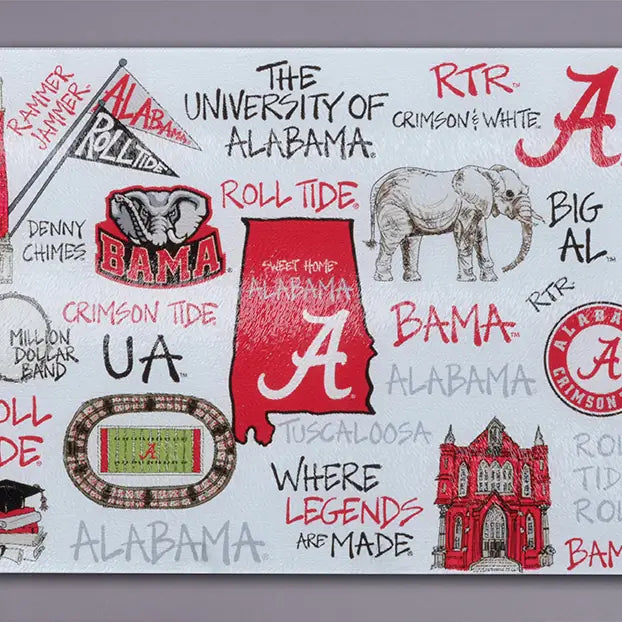 RAMMER
JAMMER
ALABAMA
ROLL TIDE
THE
UNIVERSITY OF
ALABAMA
RTR
CRIMSON & WHITE
A
ROLL TIDE
DENNY
CHIMES
BAMA
BIG
AL
SWEET HOME
ALABAMA
A
RTR
MILLION
DOLLAR
BAND
CRIMSON TIDE
UA
BAMA
ALABAMA
ALABAMA
A
CRIMSON
TUSCALOOSA
A
WHERE
LEGENDS
ARE MADE
ALABAMA
BAM